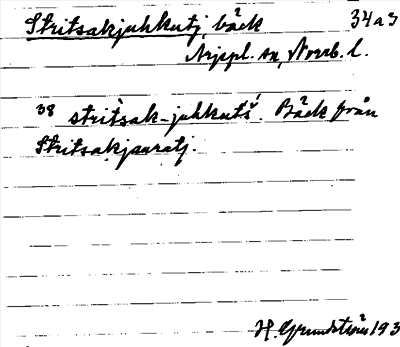 Stritsakjuhkutj, bäck 34 a 3
Arjepl. sn, Norrb. l.
38 strìtsak-juhkutš́. Bäck från
Stritsakjauratj.
H. Grundström 193